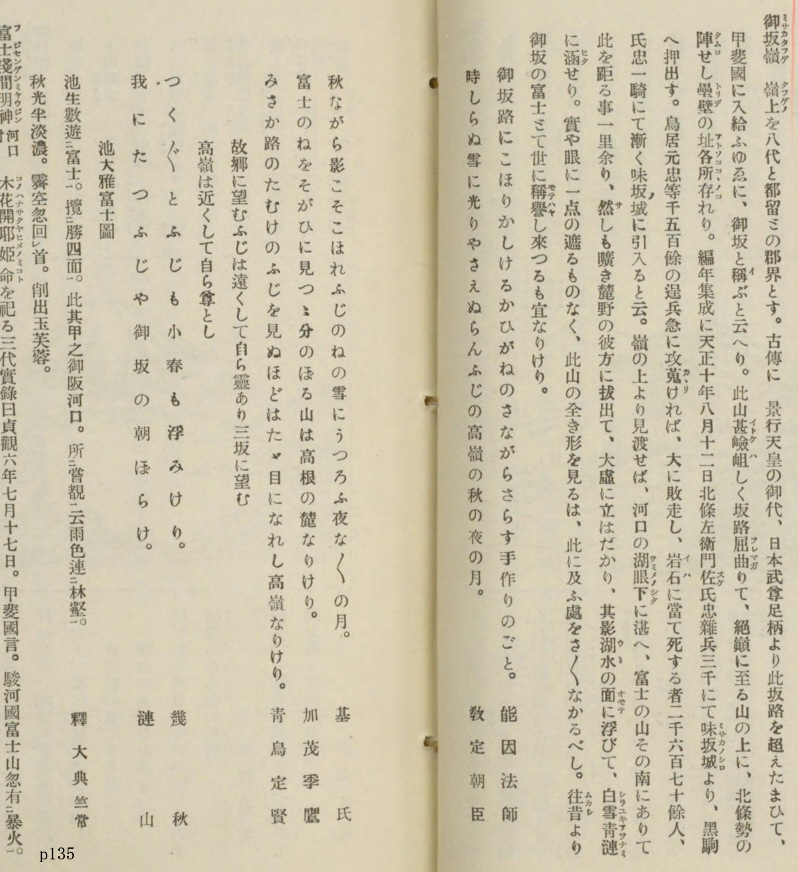 御坂嶺　嶺上を八代と都留との郡界とす。古傳に　景行天皇の御代、日本武尊足柄より此坂路を超えたまひて、
甲斐國に入給ふゆゑに、御坂と稱ぶと云へり。此山甚嶮岨しく坂路屈曲りて、絶巓に至る山の上に、北條勢の
陣せし壘壁の址各所存れり。編年集成に天正十年八月十二日北條左衛門佐氏忠雜兵三千にて味坂城より、黑駒
へ押出す。鳥居元忠等千五百餘の逞兵急に攻蒐ければ、大に敗走し、岩石に當て死する者二千六百七十餘人、
氏忠一騎にて漸く味坂城に引入ると云。嶺の上より見渡せば、河口の湖眼下に湛へ、富士の山その南にありて
此を距る事一里余り、然しも曠き麓野の彼方に拔出て、大虛に立はだかり、其影湖水の面に浮びて、白雪靑漣
に涵せり。實や眼に一点の遮るものなく、此山の全き形を見るは、此に及ふ處をさ〱なかるべし。往昔より
御坂の富士とて世に稱譽し來つるも宜なりけり。
御坂路にこほりかしけるかひがねのさながらさらす手作りのごと。　能因法師
時しらぬ雪に光りやさえぬらんふじの高嶺の秋の夜の月。　敎定朝臣
秋ながら影こそこほれふじのねの雪にうつろふ夜な〱の月。　基氏
富士のねをそがひに見つゝ分のほる山は高根の麓なりけり。　加茂季鷹
みさか路のたむけのふじを見ぬほどはたゞ目になれし高嶺なりけり。　靑鳥定賢
故鄕に望むふじは遠くして自ら靈あり三坂に望む
高嶺は近くして自ら尊とし
つく〲とふじも小春も浮みけり。　幾秋
我にたつふじや御坂の朝ほらけ。　漣山
池大雅富士圖　釋大典竺常
池生數遊㆓富士㆒。攬㆓勝四面㆒。此其甲之御阪河口。所㆓嘗覩㆒云雨色連㆓林壑㆒。
秋光半淡濃。霽空忽回㆑首。削出玉芙蓉。
富士淺間明神 河口　木花開耶姬命を祀る三代實錄曰貞觀六年七月十七日。甲斐國言。駿河國富士山忽有㆓暴火㆒。
p135